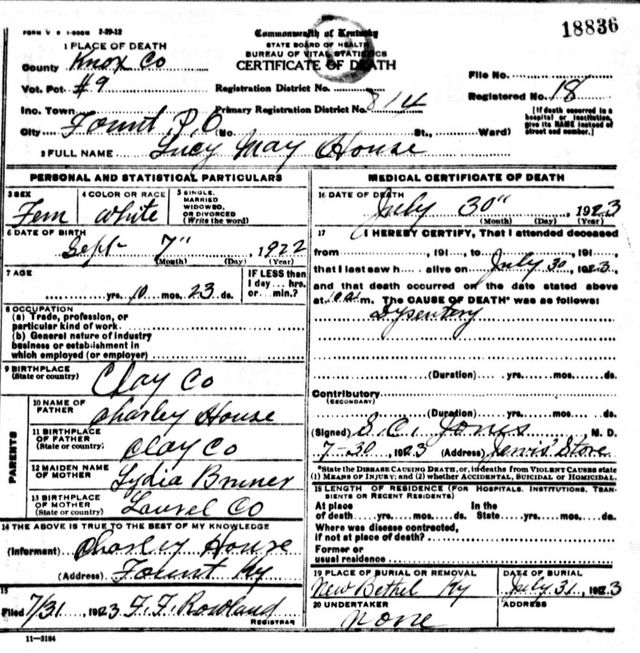 FORM V S 1-500M 2-29-12
Commonwealth of Kentucky
STATE BOARD OF HEALTH
BUREAU OF VITAL STATISTICS
CERTIFICATE OF DEATH
18836
1 PLACE OF DEATH
County Knox Co
Vot. Pct #9
Registration District No.
File No.
Inc. Town
Primary Registration District No. 814
Registered No. 18
City Fount P.O. (No. St., Ward)
[If death occurred in a hospital or institution, give its NAME instead of street and number.]
2 FULL NAME Lucy May House
PERSONAL AND STATISTICAL PARTICULARS
3 SEX
Fem
4 COLOR OR RACE
White
5 SINGLE,
MARRIED
WIDOWED,
OR DIVORCED
(Write the word)
6 DATE OF BIRTH
Sept 7", 1922
(Month) (Day) (Year)
7 AGE
yrs. 10 mos. 23 ds.
IF LESS than
1 day... hrs.
or... min.?
8 OCCUPATION
(a) Trade, profession, or
particular kind of work
(b) General nature of industry
business or establishment in
which employed (or employer)
9 BIRTHPLACE
(State or country)
Clay Co
PARENTS
10 NAME OF
FATHER
Charley House
11 BIRTHPLACE
OF FATHER
(State or country)
Clay Co
12 MAIDEN NAME
OF MOTHER
Lydia Bruner
13 BIRTHPLACE
OF MOTHER
(State or country)
Laurel Co
14 THE ABOVE IS TRUE TO THE BEST OF MY KNOWLEDGE
(Informant) Charley House
(Address) Fount Ky
15
Filed 7/31, 1923 F. F. Rowland
REGISTRAR
11-5184
MEDICAL CERTIFICATE OF DEATH
16 DATE OF DEATH
July 30", 1923
(Month) (Day) (Year)
17 I HEREBY CERTIFY, That I attended deceased
from, 191, to, 191,
that I last saw h alive on July 30, 1923,
and that death occurred on the date stated above
at m. The CAUSE OF DEATH* was as follows:
Dysentery
(Duration) yrs. mos. ds.
Contributory
(SECONDARY)
(Duration) yrs. mos. ds.
(Signed) S. C. Jones M. D.
7-30, 1923 (Address) Store
*State the DISEASE CAUSING DEATH, or, in deaths from VIOLENT CAUSES state
(1) MEANS OF INJURY; and (2) whether ACCIDENTAL, SUICIDAL or HOMICIDAL.
18 LENGTH OF RESIDENCE (FOR HOSPITALS, INSTITUTIONS, TRANSIENTS OR RECENT RESIDENTS)
At place
of death yrs. mos. ds.
In the
State yrs. mos. ds.
Where was disease contracted,
if not at place of death?
Former or
usual residence
19 PLACE OF BURIAL OR REMOVAL
New Bethel Ky
DATE OF BURIAL
July 31, 1923
20 UNDERTAKER
None
ADDRESS